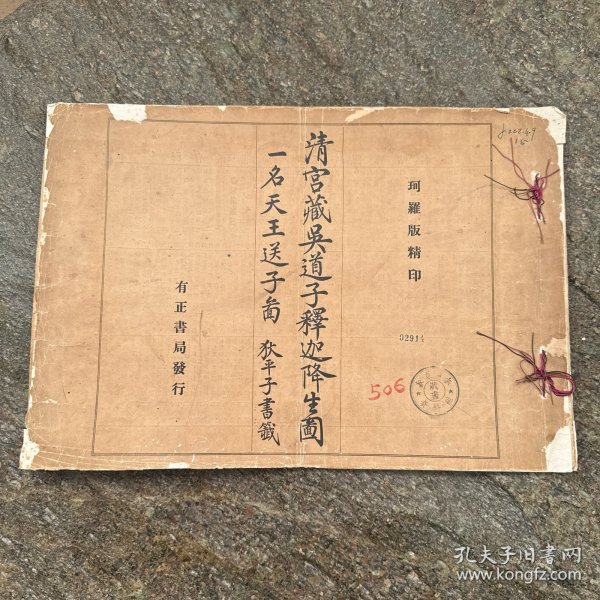 珂羅版精印
清宮藏吳道子釋迦降生圖
一名天王送子啚 狄平子書籤
有正書局發行
02914
506
藏書
孔夫子旧书网
www.kongfz.com